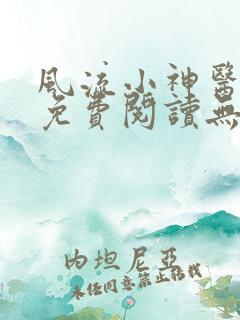 風流小神醫
免費閱讀無
內坦尼亞
未經同意禁止轉載